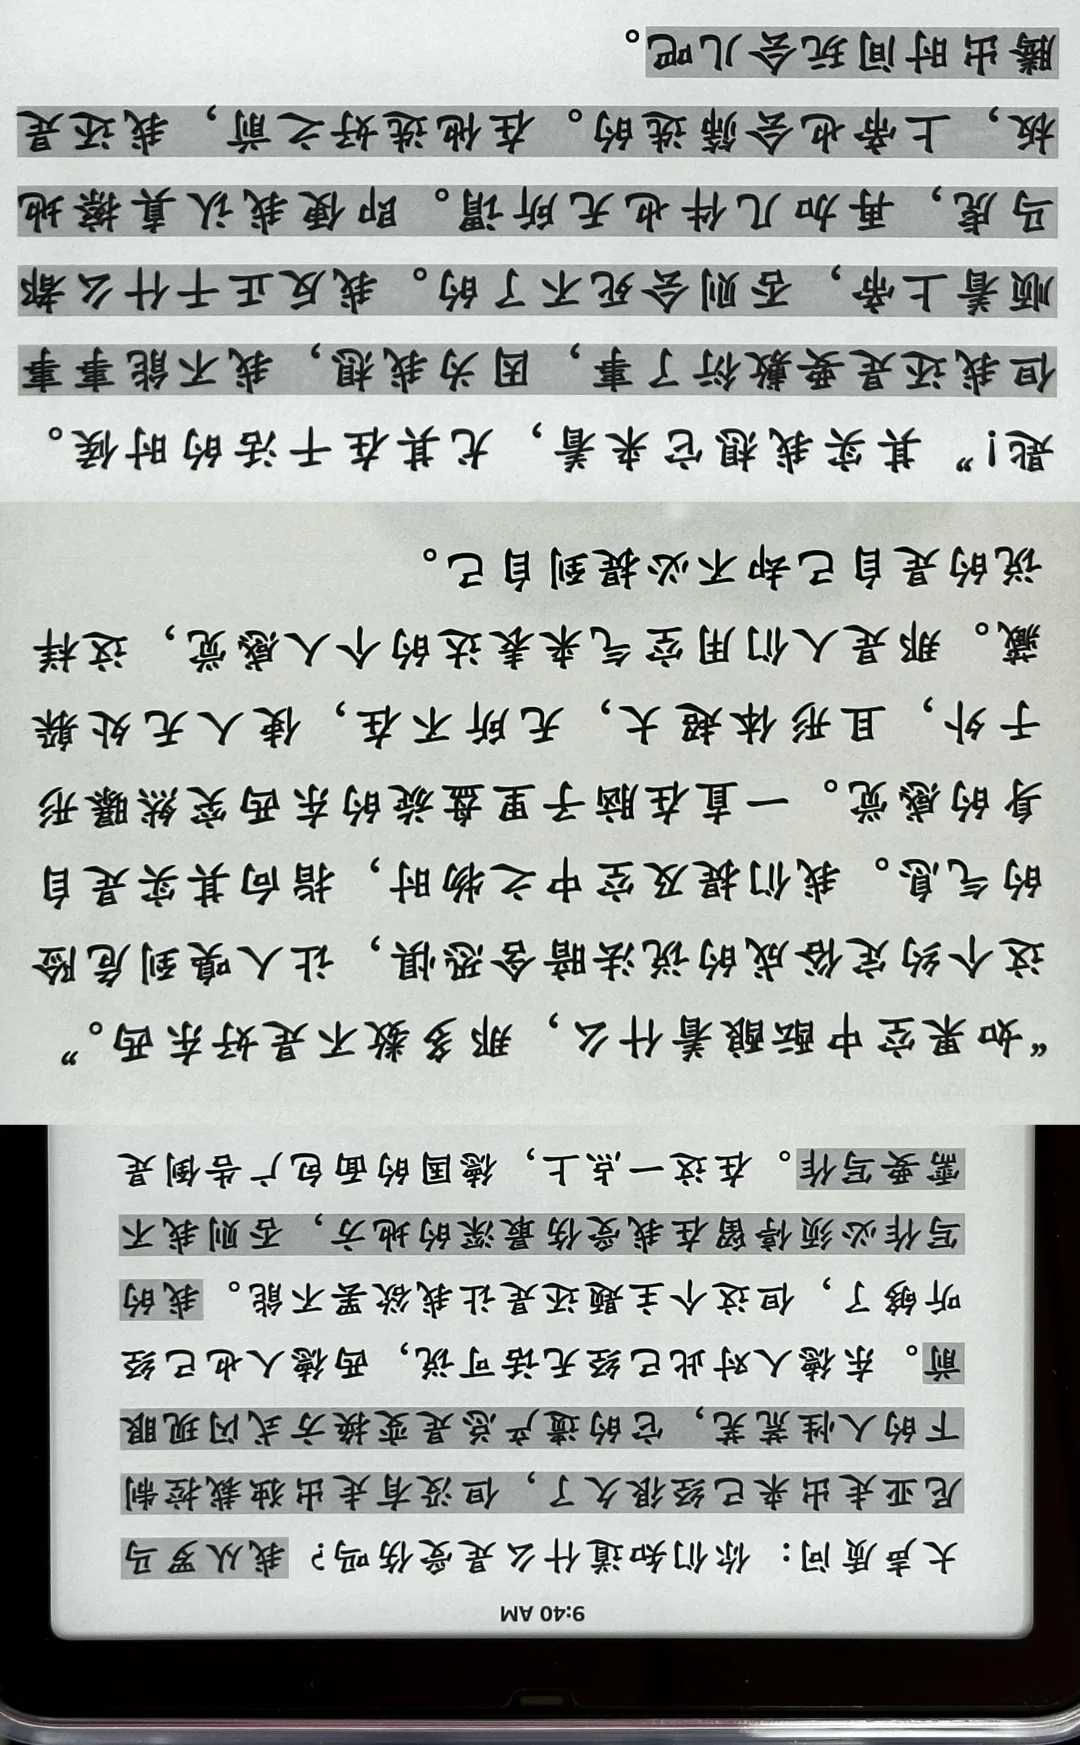 9:40 AM
大声质问：你们知道什么是受伤吗？我从罗马
尼亚走出来已经很久了，但没有走出独裁控制
下的人性荒芜，它的遗产总是变换方式闪现眼
前。东德人对此已经无话可说，西德人也已经
听够了，但这个主题还是让我欲罢不能。我的
写作必须停留在我受伤最深的地方，否则我不
需要写作。在这一点上，德国的面包广告倒是
“如果空中酝酿着什么，那多数不是好东西。”
这个约定俗成的说法暗含恐惧，让人嗅到危险
的气息。我们提及空中之物时，指向其实是自
身的感觉。一直在脑子里盘旋的东西突然曝形
于外，且形体超大，无所不在，使人无处躲
藏。那是人们用空气来表达的个人感觉，这样
说的是自己却不必提到自己。
匙！”其实我想它来着，尤其在干活的时候。
但我还是要敷衍了事，因为我想，我不能事事
顺着上帝，否则会死不了的。我反正干什么都
马虎，再加几件也无所谓。即便我认真擦地
板，上帝也会筛选的。在他选好之前，我还是
腾出时间玩会儿吧。